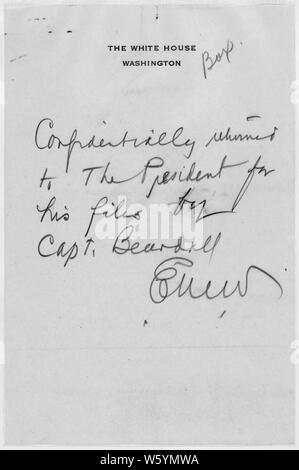 THE WHITE HOUSE
WASHINGTON
Box.
Confidentially returned
to The President for
his files by
Capt. Beardall
EMW
alamy
Image ID: W5YMWA
www.alamy.com